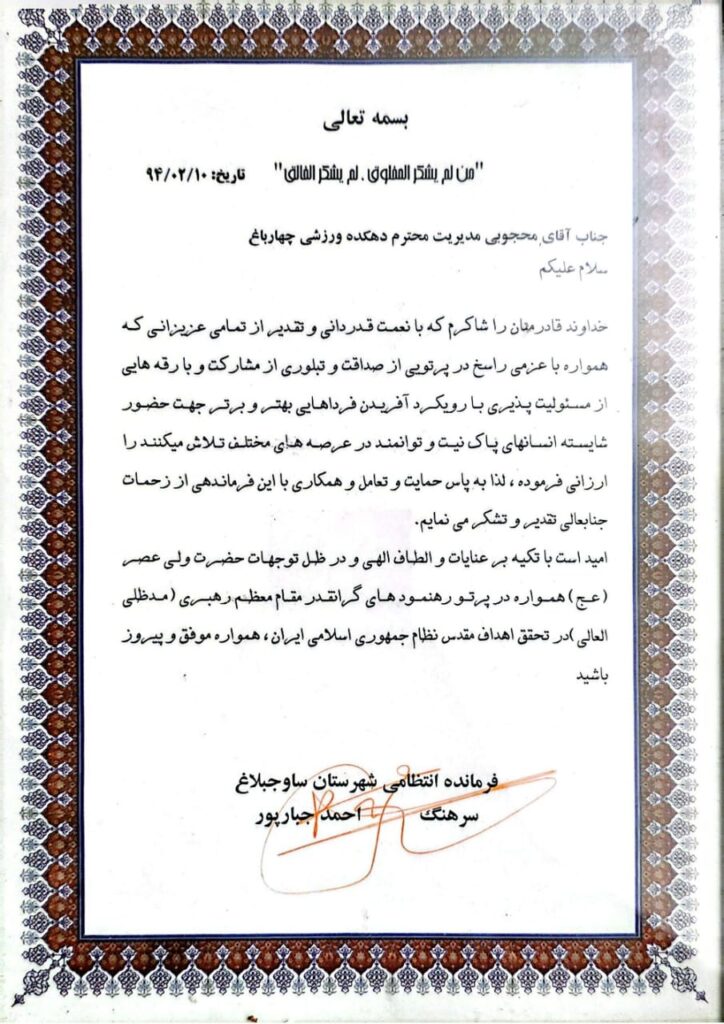 بسمه تعالی
"من لم یشکر المخلوق . لم یشکر الخالق" تاریخ: ۹۴/۰۲/۱۰
جناب آقای محجوبی مدیریت محترم دهکده ورزشی چهارباغ
سلام علیکم
خداوند قادرمنان را شاکرم که با نعمت قدردانی و تقدیر از تمامی عزیزانی که
همواره با عزمی راسخ در پرتویی از صداقت و تبلوری از مشارکت و با رقه هایی
از مسئولیت پذیری با رویکرد آفریدن فرداهایی بهتر و برتر جهت حضور
شایسته انسانهای پاک نیت و توانمند در عرصه های مختلف تلاش میکنند را
ارزانی فرموده ، لذا به پاس حمایت و تعامل و همکاری با این فرماندهی از زحمات
جنابعالی تقدیر و تشکر می نمایم.
امید است با تکیه بر عنایات و الطاف الهی و در ظل توجهات حضرت ولی عصر
(عج) همواره در پرتو رهنمود های گرانقدر مقام معظم رهبری (مدظلی
العالی)در تحقق اهداف مقدس نظام جمهوری اسلامی ایران ، همواره موفق و پیروز
باشید
فرمانده انتظامی شهرستان ساوجبلاغ
سرهنگ احمد جبارپور